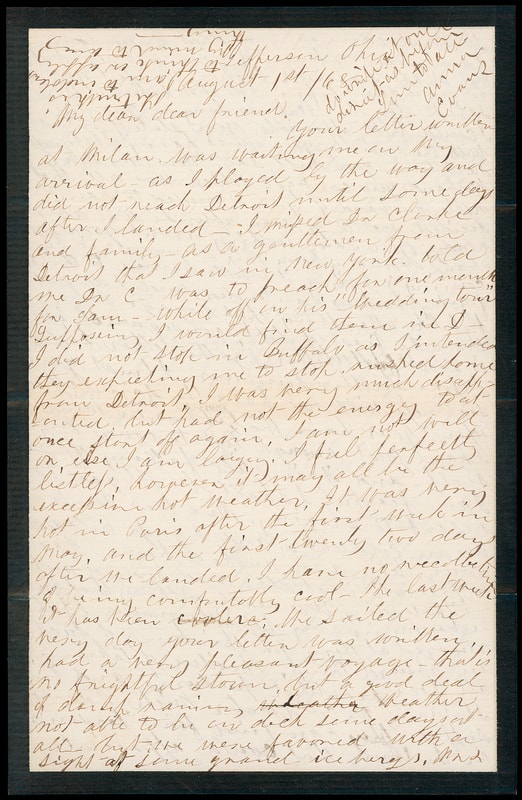 Jefferson Ohio
August 1st 1868
My dear dear friend.
Your letter written
at Milan was waiting me on my
arrival - as I played by the way and
did not reach Detroit until some days
after I landed - I missed Dr Clarke
and family - as a gentleman from
Detroit that I saw in New York told
me Dr C was to preach for one month
for Sam - while off on his "Wedding tour"
Supposing I would find them in D
I did not stop in Buffalo as I intended
they expecting me to stop, rushed home
from Detroit, I was very much disapp-
ointed, but had not the energy to at
once start off again, I am not well
or else I am lazy, I feel perfectly
listless, however it may all be the
excessive hot weather, It was very
hot in Paris after the first week in
May, and the first twenty two days
after we landed, I have no recollection
of being comfortably cool - the last week
it has been cooler. We sailed the
very day your letter was written,
had a very pleasant voyage - that is
no frightful storm, but a good deal
of damp rainy weather
not able to be on deck some days at
all - but we were favored with a
sight of some grand icebergs,
Anna
Evans